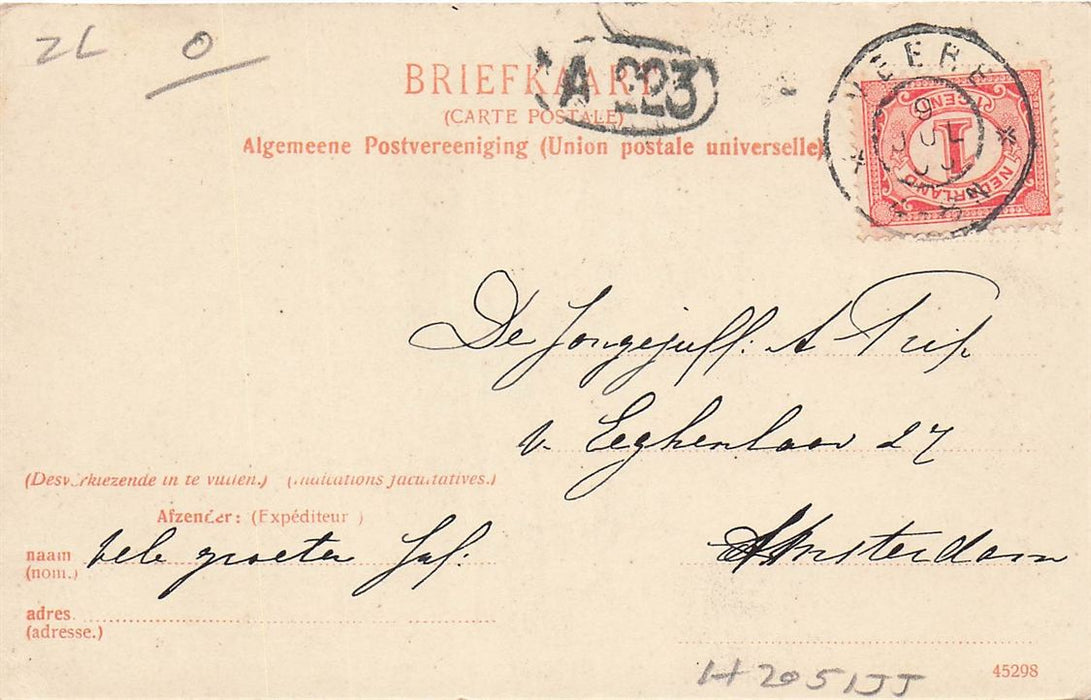 ZL O
BRIEFKAART
A 223
(CARTE POSTALE)
Algemeene Postvereeniging (Union postale universelle)
VEERE
9 JUL
1 CENT
1
NEDERLAND
De Jongejuff. A Trip
v. Eeghenlaan 27
Amsterdam
(Desverkiezende in te vullen.) (Indications facultatives.)
Afzender: (Expéditeur )
naam vele groeten Jac.
(nom.)
adres.
(adresse.)
H2051JJ
45298